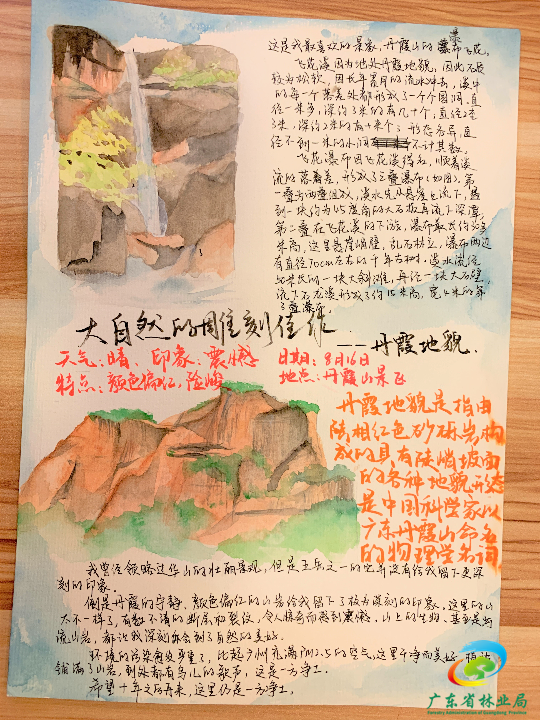 这是我最喜欢的景象，丹霞山的瀑布飞花。
飞花漫因为地处丹霞地貌，因此石质
较为坚软，因长年累月的流水冲击，溪中
的每一个落差处都形成了一个个圆洞，直
径一米多，深约3米的有几十个，直径2至
3米，深约2米的有十来个；形态各异，直
径不到一米的水洞不计其数。
飞花瀑布因飞花溪得名，顺着溪
流的落差，形成了三叠瀑布（如图）。第
一叠为两叠组成，溪水先从悬崖上流下，遇
到一块约为45度角的大石板再流下深潭，
第二叠在飞花溪的下游，瀑布最长约
米高，这里悬崖峭壁，乱石林立，瀑布两边
有直径70cm左右的千年古树，溪水流经
米长的一块大斜滩，再经一块大石壁
流下石龙溪形成了约15米高，宽4米的第
三叠瀑布。
大自然的雕刻佳作
——丹霞地貌.
天气：晴 印象：震撼 日期：8月16日
特点：颜色偏红，险峻 地点：丹霞山景区
丹霞地貌是指由
陆相红色砂砾岩构
成的具有陡峭坡面
的各种地貌形态
是中国科学家以
广东丹霞山命名
的物理学名词
我曾经领略过华山的壮丽景观，但是五岳之一的它却没有给我留下更深
刻的印象。
倒是丹霞的宁静，颜色偏红的山岩给我留下了极为深刻的印象，这里的山
大不一样了，有数不清的断层和裂纹，令人惊奇而感到震撼，山上的生物，甚至是
流山岩，都让我深刻体会到了自然的美好。
环境的污染愈发严重了，比起广州充满PM2.5的空气，这里干净而美好，
铺满了山岩，到处都有鸟儿的歌声，这是一方净土。
希望十年之后再来，这里仍是一方净土。
广东省林业局
Forestry Administration of Guangdong Province